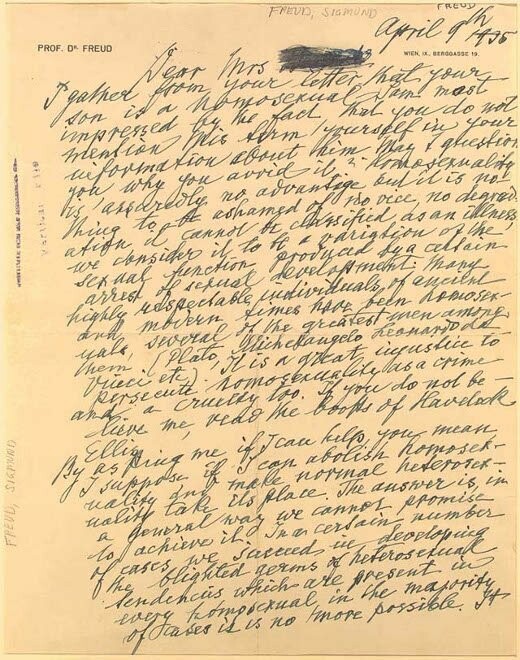 FREUD, SIGMUND
FREUD
April 9th 1935
PROF. DR. FREUD
WIEN, IX., BERGGASSE 19.
Dear Mrs
I gather from your letter that your
son is a homosexual. I am most
impressed by the fact, that you do not
mention this term yourself in your
information about him. May I question
you why you avoid it? Homosexuality
is assuredly no advantage but it is no-
thing to be ashamed of, no vice, no degrad-
ation, it cannot be classified as an illness;
we consider it to be a variation of the
sexual function produced by a certain
arrest of sexual development. Many
highly respectable individuals of ancient
and modern times have been homosex-
uals, several of the greatest men among
them. (Plato, Michelangelo, Leonardo da
Vinci etc). It is a great injustice to
persecute homosexuality as a crime
and a cruelty too. If you do not be-
lieve me, read the books of Havelock
Ellis.
By asking me if I can help, you mean
I suppose if I can abolish homosex-
uality and make normal heterosex-
uality take its place. The answer is, in
a general way we cannot promise
to achieve it. In a certain number
of cases we succeed in developing
the blighted germs of heterosexual
tendencies which are present in
every homosexual, in the majority
of cases it is no more possible. It
FREUD, SIGMUND